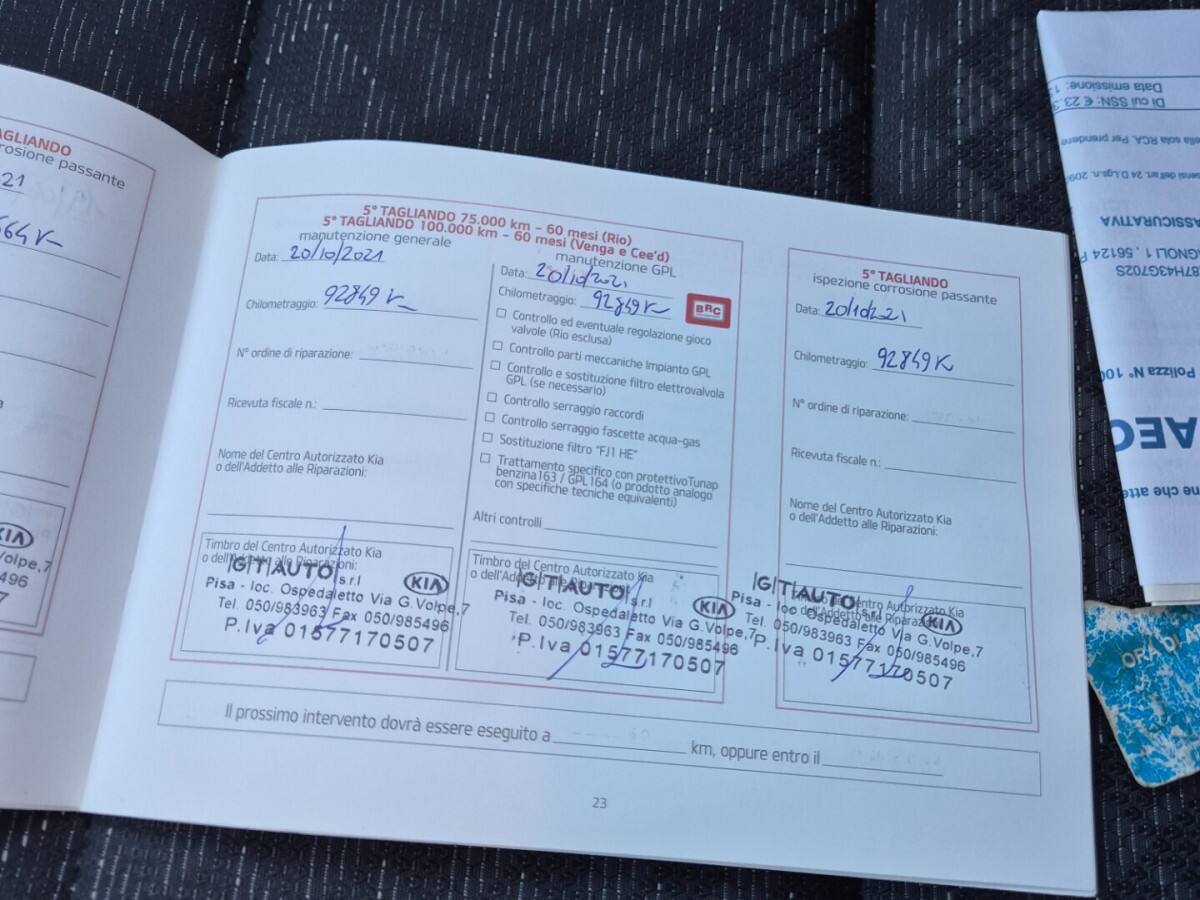 AGLIANDO
rrosione passante
21
664 K
KIA
Volpe,7
5496
5° TAGLIANDO 75.000 km – 60 mesi (Rio)
5° TAGLIANDO 100.000 km – 60 mesi (Venga e Cee'd)
manutenzione generale
Data: 20/10/2021
Chilometraggio: 92849 K
N° ordine di riparazione:
Ricevuta fiscale n.:
Nome del Centro Autorizzato Kia
o dell'Addetto alle Riparazioni:
Timbro del Centro Autorizzato Kia
o dell'Addetto alle Riparazioni:
|G|T|AUTO| s.r.l
KIA
Pisa - loc. Ospedaletto Via G.Volpe,7
Tel. 050/983963 Fax 050/985496
P.Iva 01577170507
manutenzione GPL
Data: 20/10/2021
Chilometraggio: 92849 K
BRC
Controllo ed eventuale regolazione gioco
valvole (Rio esclusa)
Controllo parti meccaniche Impianto GPL
Controllo e sostituzione filtro elettrovalvola
GPL (se necessario)
Controllo serraggio raccordi
Controllo serraggio fascette acqua-gas
Sostituzione filtro "FJ1 HE"
Trattamento specifico con protettivoTunap
benzina163 / GPL164 (o prodotto analogo
con specifiche tecniche equivalenti)
Altri controlli
Timbro del Centro Autorizzato Kia
o dell'Addetto alle Riparazioni:
|G|T|AUTO| s.r.l
KIA
Pisa - loc. Ospedaletto Via G.Volpe,7
Tel. 050/983963 Fax 050/985496
P.Iva 01577170507
5° TAGLIANDO
ispezione corrosione passante
Data: 20/10/2021
Chilometraggio: 92849 K
N° ordine di riparazione:
Ricevuta fiscale n.:
Nome del Centro Autorizzato Kia
o dell'Addetto alle Riparazioni:
Timbro del Centro Autorizzato Kia
o dell'Addetto alle Riparazioni:
|G|T|AUTO| s.r.l
KIA
Pisa - loc. Ospedaletto Via G.Volpe,7
Tel. 050/983963 Fax 050/985496
P.Iva 01577170507
Il prossimo intervento dovrà essere eseguito a km, oppure entro il
23
Data emissione:
Di cui SSN: € 23,
sola RCA. Per prendere
sensi dell'art. 24 D.Lgs.n. 209
ASSICURATIVA
GNOLI 1 , 56124
87H43G702S
Polizza N° 100
AEC
ne che atte
ORA DI A